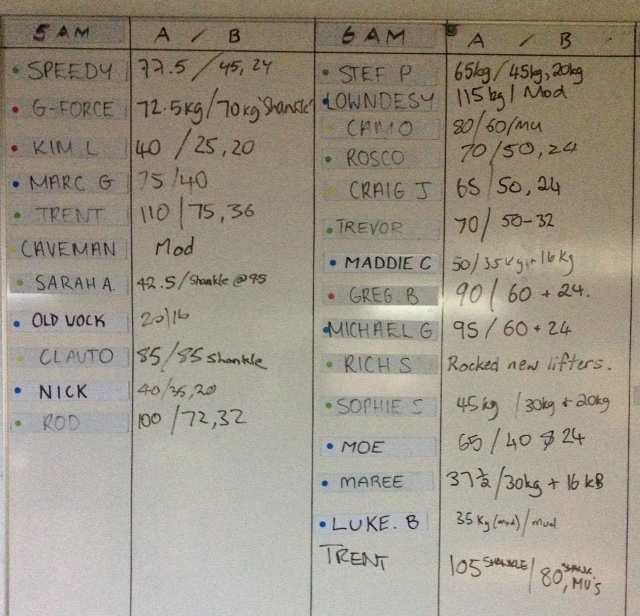 5 AM A / B
SPEEDY 77.5 / 45, 24
G-FORCE 72.5kg/70kg 'Shankle'
KIM L 40 / 25, 20
MARC G 75/40
TRENT 110 / 75, 36
CAVEMAN Mod
SARAH A 42.5/Shankle @ 95
OLD VOCK 20/16
CLAUTO 85/85 Shankle
NICK 40/35,20
ROD 100 / 72, 32
6 AM A / B
STEF P 65kg / 45kg, 20kg
LOWNDESY 115kg / Mod
CAMO 80/60/mu
ROSCO 70 / 50, 24
CRAIG J 65 / 50, 24
TREVOR 70 / 50-32
MADDIE C 50/35kg + 16kg
GREG. B 90 / 60 + 24.
MICHAEL G 95 / 60 + 24
RICH S Rocked new lifters.
SOPHIE S 45kg / 30kg + 20kg
MOE 65 / 40 24
MAREE 37 ½ / 30kg + 16 KB
LUKE. B 35 Kg (mod) / mod
TRENT 105 SHANKLE / 80, MU'S